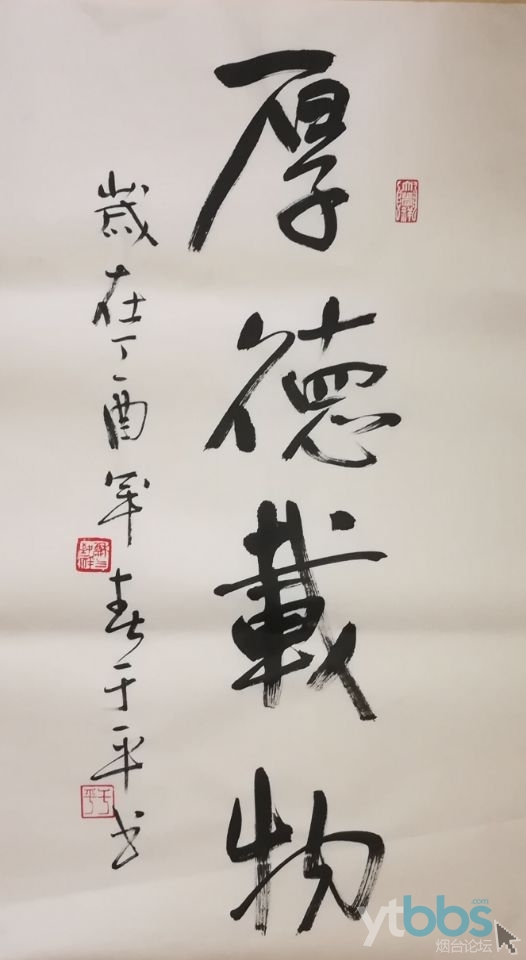 厚德载物
岁在丁酉年春于平书
于平
ytbbs.com
烟台论坛